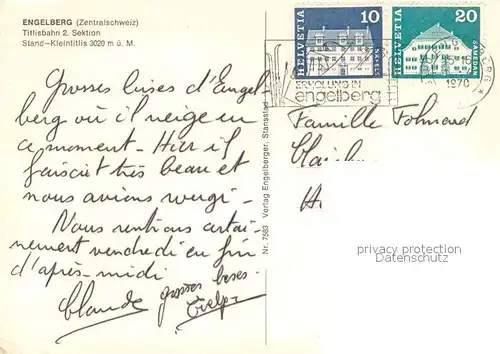 ENGELBERG (Zentralschweiz)
Titlisbahn 2. Sektion
Stand—Kleintitlis 3020 m ü. M.
HELVETIA 10 BASEL
HELVETIA 20 SARNEN
ERHOLUNG IN
engelberg
1970
Grosses bises d'Engel
berg où il neige en
ce moment - Hier il
faisait très beau et
nous avions rougi -
Nous rentrons certai-
nement vendredi en fin
d'après-midi
grosses bises -
Claude
Famille
Nr. 7683 Verlag Engelberger, Stansstad
privacy protection
Datenschutz